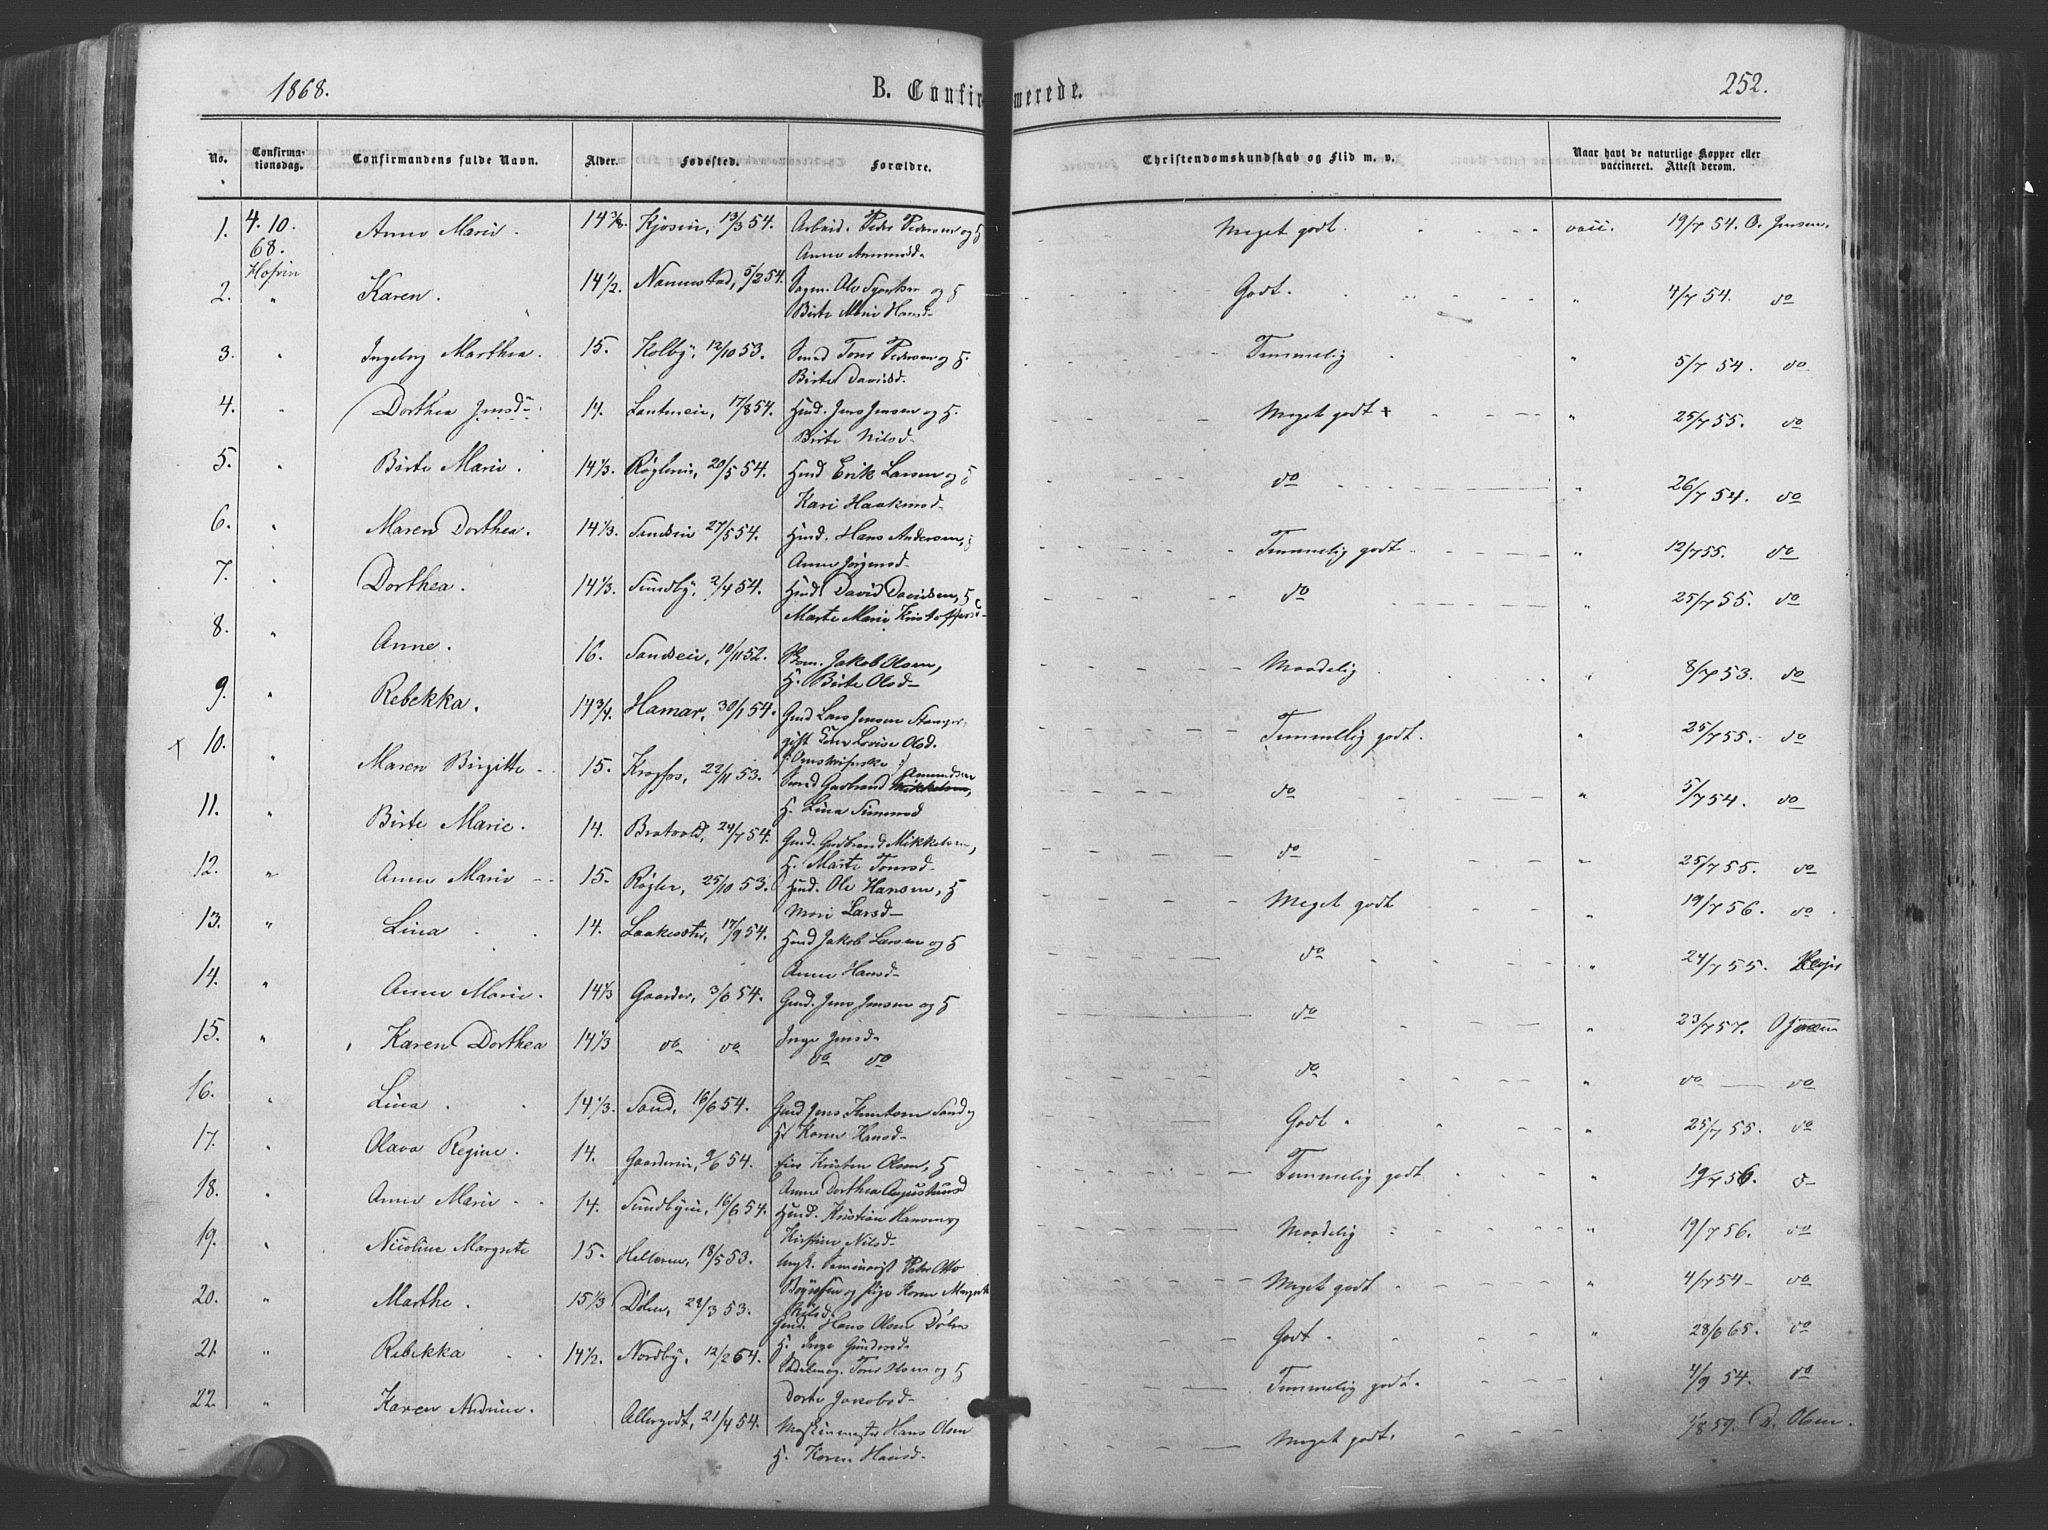 1868. B. Confirmerede. 252.
No. Confirma-tionsdag. Confirmandens fulde Navn. Alder. Fødested. Forældre. Christendomskundskab og Flid m. v. Naar havt de naturlige Kopper eller vaccineret. Attest derom.
1. 4. 10. 68. Hofvin Anne Marie. 14 5/8. 13/3 54. Arbeid. Peder Pedersen og H Meget godt. vacc. 19/7 54. O. Jensen.
Anne Ammundsd-
2. " Karen. 14 1/2. Nannestad, 5/2 54. Godt. " 4/7 54. do
Birte Marie Hansd-
3. " Ingeborg Marthea. 15. Kolby, 12/10 53. Smed Tons Pedersen og H. Temmelig " 5/7 54. do
Birte Davidsd.
4. " Dorthea Jensd-. 14. Lautmeie, 17/8 54. Hmd. Jens Jensen og H. Meget godt + " 25/7 55. do
Birte Nilsd-
5. " Birte Marie. 14 1/3. Røglereie, 20/5 54. Hmd Erik Larsen og H do " 26/7 54. do
Kari Haakensd-
6. " Maren Dorthea. 14 1/3. Sandeie 27/5 54. Hmd. Hans Andersen, H Temmelig godt " 12/7 55. do
Anne Jørgensd-
7. " Dorthea. 14 1/3. Sundby, 2/4 54. Hmd David Davidsen, H do " 25/7 55. do
Marte Marie Kristoffersd-
8. " Anne. 16. Sandseie, 10/11 52. Jakob Olsen, Maadelig " 8/7 53. do
H. Birte Olsd-
9. " Rebekka. 14 3/4. Hamar, 30/1 54. Gmd Lars Jensen Stanger Temmelig godt. " 25/7 55. do
Lovise Olsd.
x 10. " Maren Birgitte - 15. Krogfos, 22/11 53. Smed Gudbrand Amundsen Mikkelsen, do " 5/7 54. do
H. Lina Simensd
11. " Birte Marie. 14. Bratvold, 24/7 54. Gmd. Gudbrand Mikkelsen, do " 25/7 55. do
H. Marte Tonsd-
12. " Anne Marie - - 15. Røgler, 25/10 53. Hmd. Ole Hansen, H Meget godt 19/7 56. do
Mari Larsd-
13. " Lina 14. 17/9 54. Hmd Jakob Larsen og H do " 24/7 55.
Anne Hansd-
14. " Anne Marie. 14 1/3 Gaarder, 3/6 54. Gmd. Jens Jensen og H do " 23/7 57. O Jensen
Inge Jensd-
15. " Karen Dorthea 14 1/3 do do do do do " do do
16. " Lina 14 1/3. Sand, 16/6 54. Gmd Jens Knutsen Sand og Godt " 25/7 55. do
H Karen Hansd-
17. " Olava Regine. 14. Gaardereie, 9/6 54. Kristen Olsen, H Temmelig godt " 19/7 56. d-
Anne Dorthea Augustinusd
18. " Anne Marie 14. Sundbyeie, 16/6 54. Hmd. Kristian Hansen og Maadelig " 19/7 56. do
Kirstine Nilsd-
19. " Nicoline Margrete 15. Helteren, 18/5 53. Ungk. Seminarist Peter Otto Meget godt " 4/7 54- do
og Pige Karen Margrete Nilsd.
20. " Marthe. 15 1/3 Dølen, 28/3 53. Gmd. Hans Olsen Dølen Godt " 28/6 65. do
H. Inge Gundersd-
21. " Rebekka 14 1/2. Nordby, 12/2 54. Sadelmag. Tons Olsen og H Temmelig godt. 4/9 54. do
Dorte Jacobsd-
22. " Karen Andrine. Allergodt, 21/4 54. Maskinmester Hans Olsen Meget godt. 1/8 59. D. Olsen.
H. Karen Hansd-